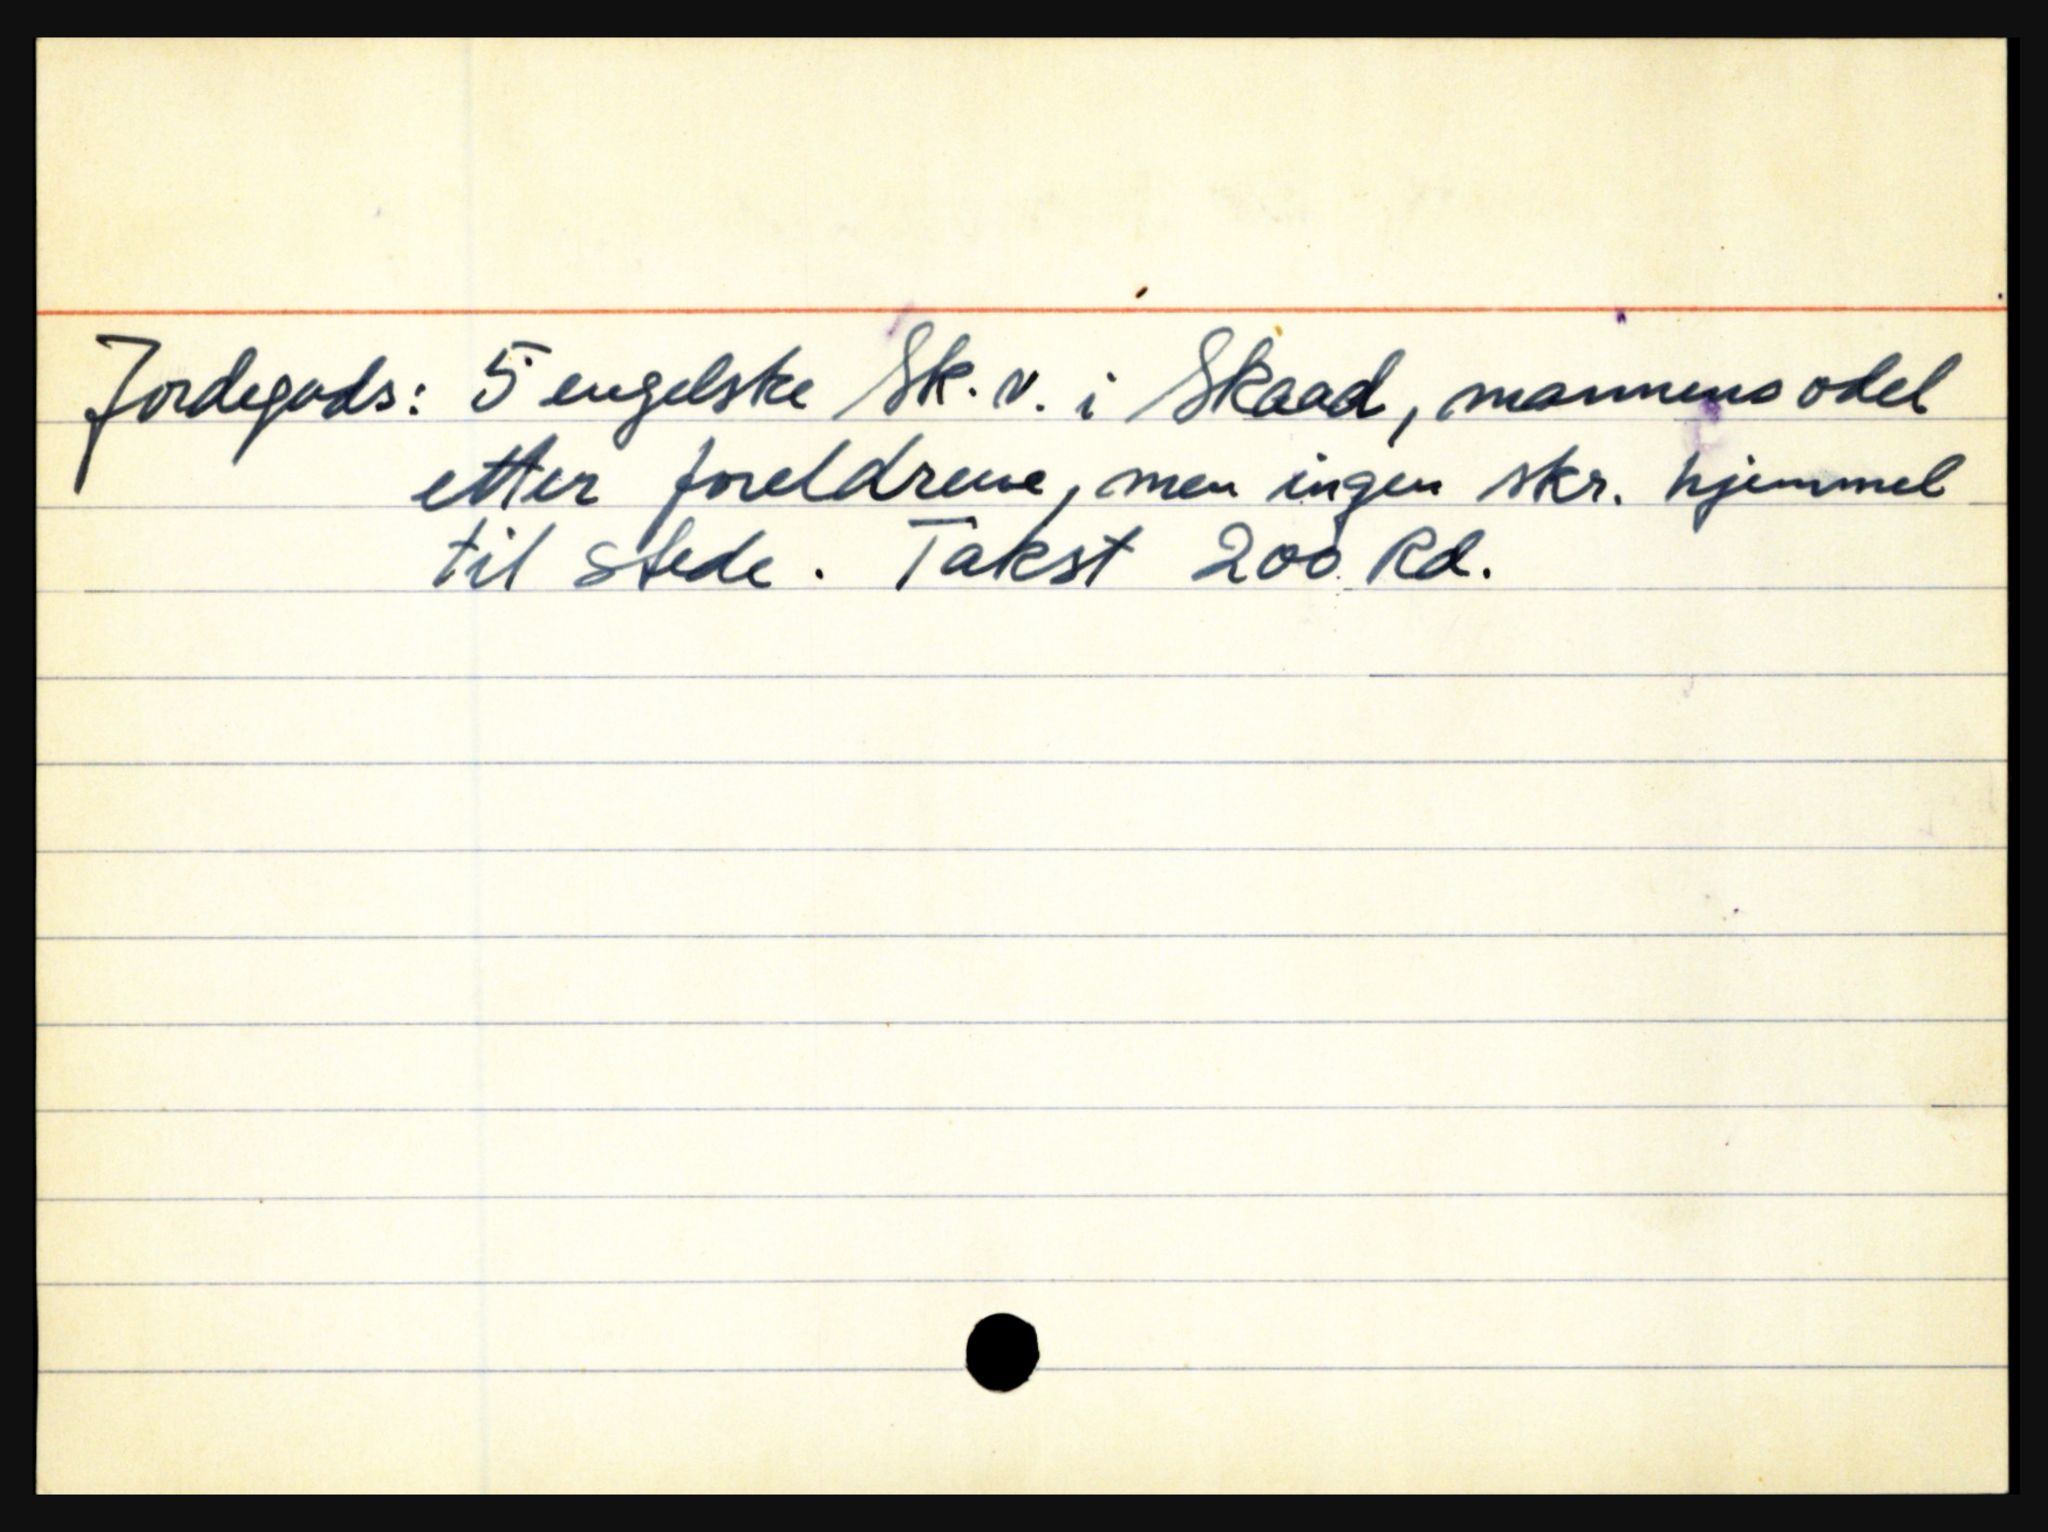 Jordegods: 5 engelske Sk. v. i Skaad, mannens odel
etter foreldrene, men ingen skr. hjemmel
til stede. Takst 200 Rd.